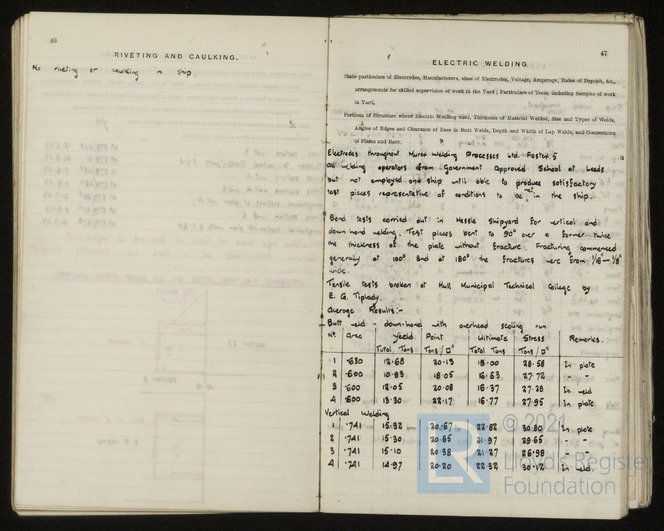 46
RIVETING AND CAULKING.
No riveting or caulking in ship.
47
ELECTRIC WELDING.
State particulars of Electrodes, Manufacturers, sizes of Electrodes, Voltage, Amperage, Rates of Deposit, &c.,
arrangements for skilled supervision of work in the Yard; Particulars of Tests, including Samples of work
in Yard,
Portions of Structure where Electric Welding used, Thickness of Material Welded, Size and Types of Welds,
Angles of Edges and Clearance of Bars in Butt Welds, Depth and Width of Lap Welds, and Connections
of Plates and Bars.
Electrodes throughout Murex Welding Processes Ltd. Fastex 5
All welding operators from Government Approved School at Leeds
but not employed on ship until able to produce satisfactory
test pieces representative of conditions to be met in the ship.
Bend tests carried out in Hessle Shipyard for vertical and
down hand welding. Test pieces bent to 90° over a former twice
the thickness of the plate without fracture. Fracturing commenced
generally at 100° and at 180° the fractures were from 1/16"-1/8"
wide.
Tensile tests broken at Hull Municipal Technical College by
E. G. Tiplady.
Average Results:-
Butt weld - down-hand with overhead sealing run
No. Area Yield Point Ultimate Stress Remarks.
Total Tons Tons/□" Total Tons Tons/□"
1 .630 12.68 20.13 18.00 28.58 In plate
2 .600 10.83 18.05 16.63 27.72 " "
3 .600 12.05 20.08 16.37 27.28 In weld
4 .600 13.30 22.17 16.77 27.95 In plate.
Vertical Welding
1 .741 15.32 20.67 22.82 30.80 In plate
2 .741 15.30 20.65 21.97 29.65 " "
3 .741 15.10 20.38 21.27 28.98 " "
4 .741 14.97 20.20 22.32 30.12 In weld.
LR
© 2021
Lloyd's Register
Foundation